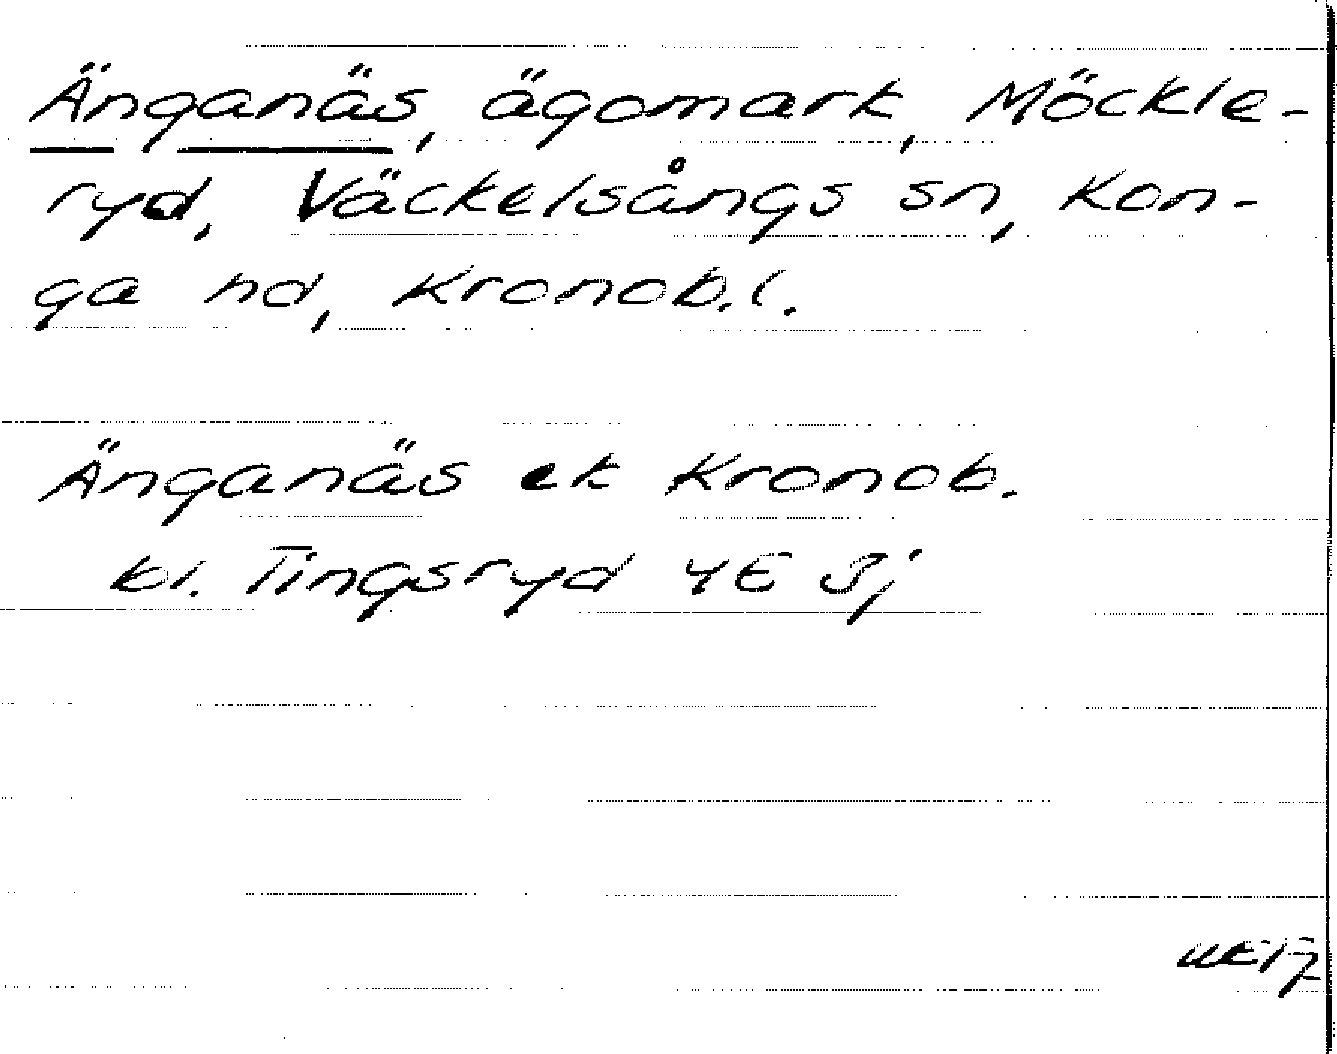 Änganäs, ägomark, Möckle-
ryd, Väckelsångs sn, Kon-
ga hd, Kronob. l.
Änganäs ek Kronob.
bl. Tingsryd 4E 3j